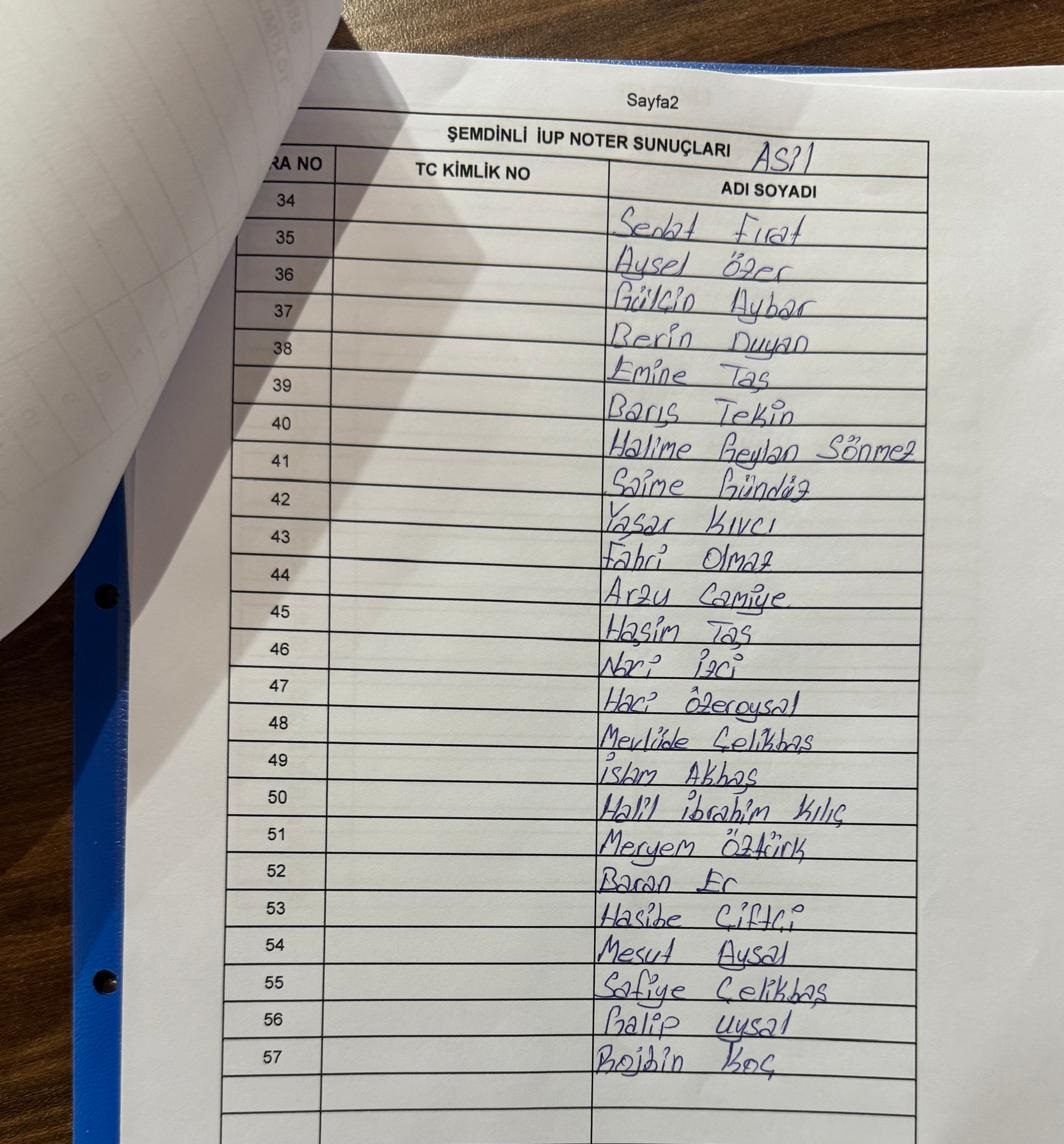 Sayfa2
ŞEMDİNLİ İUP NOTER SUNUÇLARI ASil
RA NO TC KİMLİK NO ADI SOYADI
34 Sedat Fırat
35 Aysel Özer
36 Gülçin Aybar
37 Berin Duyan
38 Emine Taş
39 Barış Tekin
40 Halime Geylan Sönmez
41 Saime Gündüz
42 Yaşar Kıvcı
43 Fahri Olmaz
44 Arzu Camiye
45 Haşim Taş
46 Nari İzci
47 Haci Özeroysal
48 Mevlüde Çelikbaş
49 İslam Akbaş
50 Halil İbrahim Kılıç
51 Meryem Öztürk
52 Baran Er
53 Hasibe Çiftçi
54 Mesut Aysal
55 Safiye Çelikbaş
56 Galip Uysal
57 Rojbin Koç